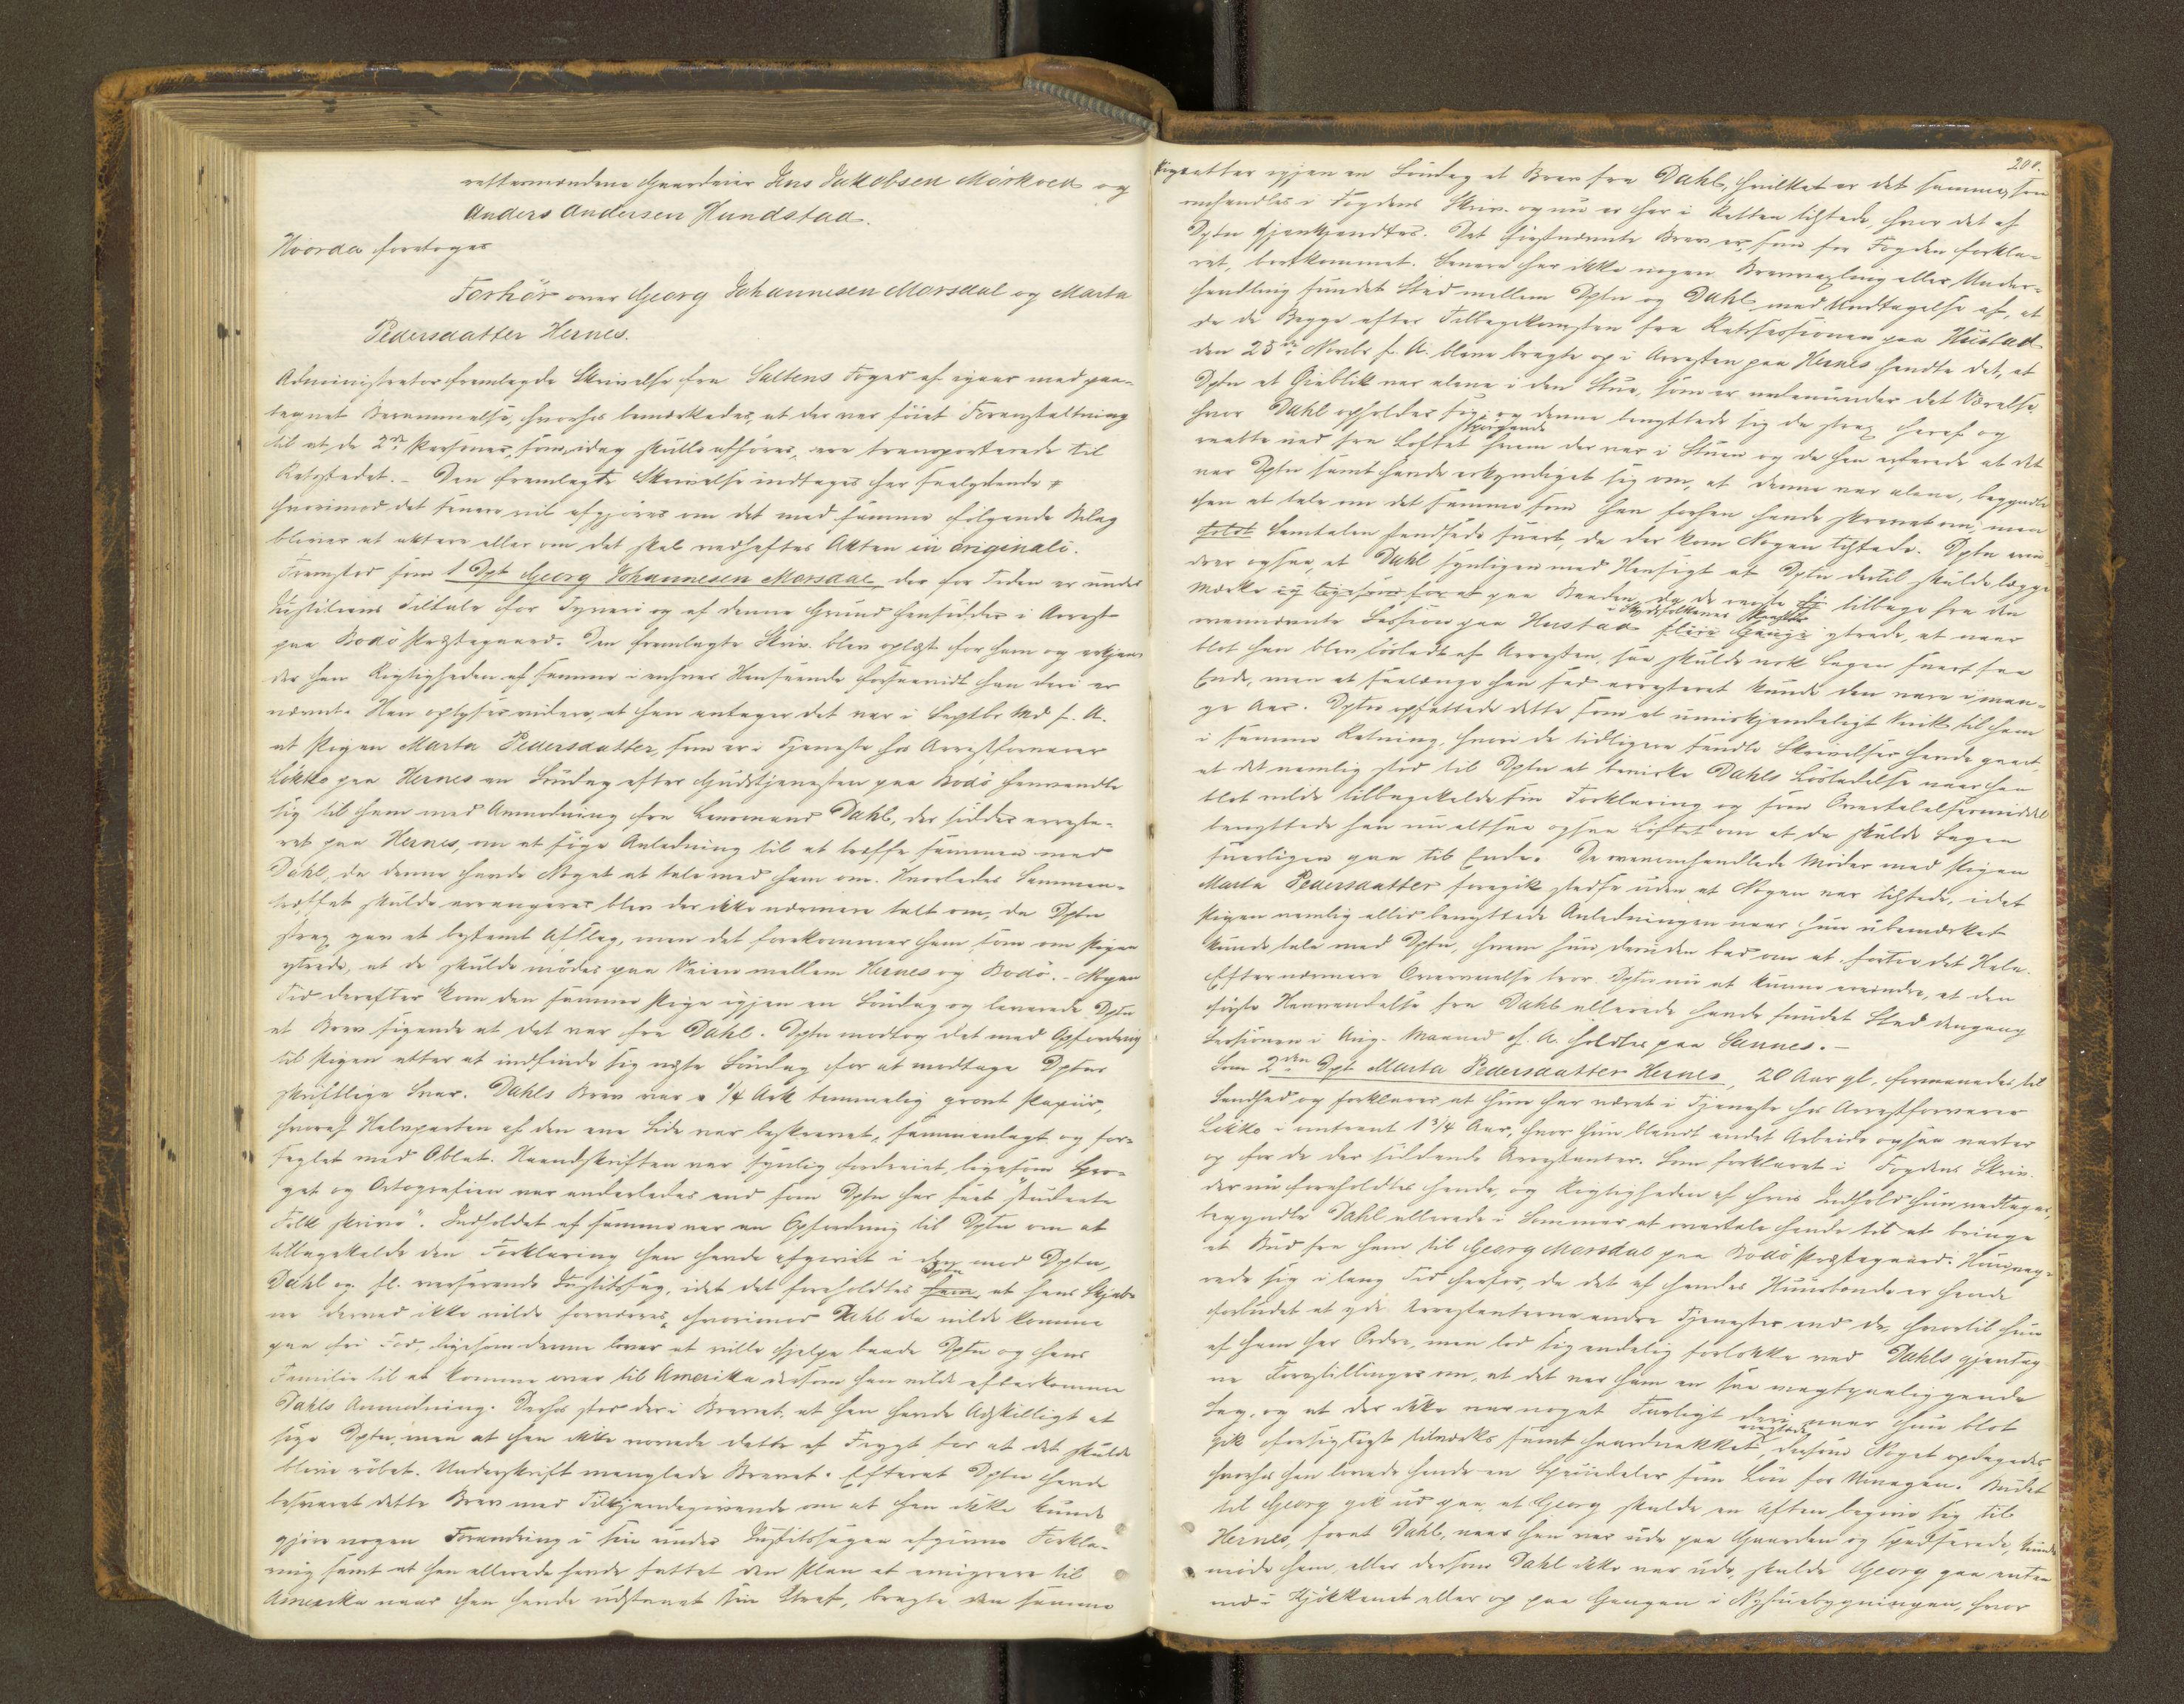 rettermændene Gaardeier Jens Jakobsen Mörkved og
Anders Andersen Hundstad.
Hvorda foretoges
Forhör over Georg Johannesen Marsdal og Marta
Pedersdatter Hernes.
Administrator fremlagde Skrivelse fra Saltens Foged af igaar med paa-
tegnet Berammelse, hvorhos bemærkedes, at der var föiet Foranstaltning
til at de 2de Personer, som idag skulle afhöres, ere transporterede til
Retsstedet. - Den fremlagte Skrivelse indtages her saalydende #
hvorimod det senere vil afgjöres om det med samme fölgende Bilag
bliver at aktere eller om det skal vedheftes Akten in originali.
Fremstod som 1 Dpt Georg Johannesen Marsdal, der for Tiden er under
Justitiens Tiltale for Tyveri og af denne Grund hensidder i Arrest
paa Bodö Præstegaard. Den fremlagte Skriv. blev oplæst for ham og erkjen-
der han Rigtigheden af samme i enhver Henseende forsaavidt han deri er
nævnt. Han oplyser videre, at han antager det var i Septbr Md f. A.
at Pigen Marta Pedersdatter, som er i Tjeneste hos Arrestforvarer
Lökke paa Hernes en Söndag efter Gudstjenesten paa Bodö henvendte
sig til ham med Anmodning fra Lensmand Dahl, der sidder arreste-
ret paa Hernes, om at söge Anledning til at træffe sammen med
Dahl, da denne havde Noget at tale med ham om. Hvorledes Sammen-
træffet skulde arrangeres blev der ikke nærmere talt om, da Dptn
strax gav et bestemt Afslag, men det forekommer ham som om Pigen
ytrede, at de skulde mödes paa Veien mellem Hernes og Bodö. - Nogen
Tid derefter kom den samme Pige igjen en Söndag og leverede Dptn
et Brev sigende at det var fra Dahl. Dptn modtog det med Opfordring
til Pigen atter at indfinde sig næste Söndag for at modtage Dptns
skriftlige Svar. Dahls Brev var 1/4 Ark temmelig grovt Papiir,
hvoraf Halvparten af den ene Side var beskrevet, sammenlagt og for-
seglet med Oblat. Haandskriften var synlig fordreiet, ligesom Spro-
get og Ortografien var anderledes end som Dptn har seet "studerte
Folk skrive". Indholdet af samme var en Opfordring til Dptn om at
tilbagekalde den Forklaring han havde afgivet i den mod Dptn,
Dahl og fl. verserende Justitssag, idet det foreholdtes ham Dptn, at hans Skjæb-
ne derved ikke vilde forværres, hvorimod Dahl da vilde komme
paa fri Fod, ligesom denne lover at ville hjelpe baade Dptn og hans
Familie til at komme over til Amerika dersom han vilde efterkomme
Dahls Anmodning. Derhos stod der i Brevet, at han havde Adskilligt at
sige Dptn, men at han ikke vovede dette af Frygt for at det skulde
blive röbet. Underskrift manglede Brevet. Efterat Dptn havde
besvaret dette Brev med Tilkjendegivende om at han ikke kunde
gjöre nogen Forandring i sin under Justitssagen afgivne Forkla-
ring samt at han allerede havde fattet den Plan at emigrere til
Amerika naar han havde udstaaet sin Straf, bragte den samme
208.
Pige atter igjen en Söndag et Brev fra Dahl, hvilket er det samme, som
omhandles i Fogdens Skriv. og nu er her i Retten tilstede, hvor det af
Dptn gjenkjendtes. Det förstnævnte Brev er, som for Fogden forkla-
ret, bortkommet. Senere har ikke nogen Brevvexling eller Under-
handling fundet Sted mellem Dptn og Dahl med Undtagelse af, at
da de Begge efter Tilbagekomsten fra Retssessionen paa Hustad
den 25de Novbr f. A. bleve bragte op i Arresten paa Hernes hendte det, at
Dptn et Öieblik var alene i den Stue, som er nedenunder det Værelse,
hvor Dahl opholder sig; og denne benyttede sig da strax heraf og
raabte ned fra Loftet spörgende hvem der var i Stuen og da han erfarede at det
var Dptn samt havde erkyndiget sig om, at denne var alene, begyndte
han at tale om det samme som han forhen havde skrevet om, men
Samtalen standsede snart, da der kom Nogen tilstede. Dptn erin-
drer ogsaa, at Dahl synligen med Hensigt at Dptn dertil skulde lægge
Mærke paa Baaden, da de reiste tilbage fra den
ovennævnte Session paa Hustad i Skydsfolkenes Paahör ytrede, at naar
blot han blev lösladt af Arresten, saa skulde nok Sagen snart faa
Ende, men at saalænge han sad arresteret kunde den vare i man-
ge Aar. Dptn opfattede dette som et umiskjendeligt Vink til ham
i samme Retning, hvori de tidligere sendte Skrivelser havde gaaet,
at det nemlig stod til Dptn at bevirke Dahls Lösladelse naar han
blot vilde tilbagekalde sin Forklaring og som Overtalelsesmiddel
benyttede han nu altsaa ogsaa Löftet om at da skulde Sagen
snarligen gaa til Ende. De ovenomhandlede Möder med Pigen
Marta Pedersdatter foregik stedse uden at Nogen var tilstede, idet
Pigen nemlig altid benyttede Anledningen naar hun ubemærket
kunde tale med Dptn, hvem hun desuden bad om at fortie det Hele.
Efter nærmere Overveielse tror Dptn nu at kunne erindre, at den
förste Henvendelse fra Dahl allerede havde fundet Sted dengang
Sessionen i Aug. Maaned f. A. holdtes paa Saunes. -
Som 2den Dpt Marta Pedersdatter Hernes, 20 Aar gl. formanedes til
Sandhed og forklarer, at hun har været i Tjeneste hos Arrestforvarer
Lökke i omtrent 1 3/4 Aar, hvor hun blandt andet Arbeide ogsaa varter
op for de der siddende Arrestanter. Som forklaret i Fogdens Skriv.
der nu foreholdtes hende, og Rigtigheden af hvis Indhold hun vedtager,
begyndte Dahl allerede i Sommer at overtale hende til at bringe
et Bud fra ham til Georg Marsdal paa Bodö Præstegaard. Hun væg-
rede sig i lang Tid herfor, da det af hendes Huusbonde er hende
forbudet at yde Arrestanterne andre Tjenester end de, hvortil hun
af ham har Ordre, men lod sig endelig forlokke ved Dahls gjentag-
ne Forestillinger om, at det var ham en saa magtpaaliggende
Sag, og at der ikke var noget Farligt deri, naar hun blot
gik forsigtigt tilværks samt haardnakket negtede, dersom Noget opdagedes
hvorhos han lovede hende en Speciedaler som Lön for Umagen. Budet
til Georg gik ud paa, at Georg skulde en Aften begive sig til
Hernes, forat Dahl, naar han var ude paa Gaarden og spadserede, kunde
möde ham, eller dersom Dahl ikke var ude, skulde Georg gaa enten
ind i Kjökkenet eller op paa Gangen i Nyhuusbygningen, hvor